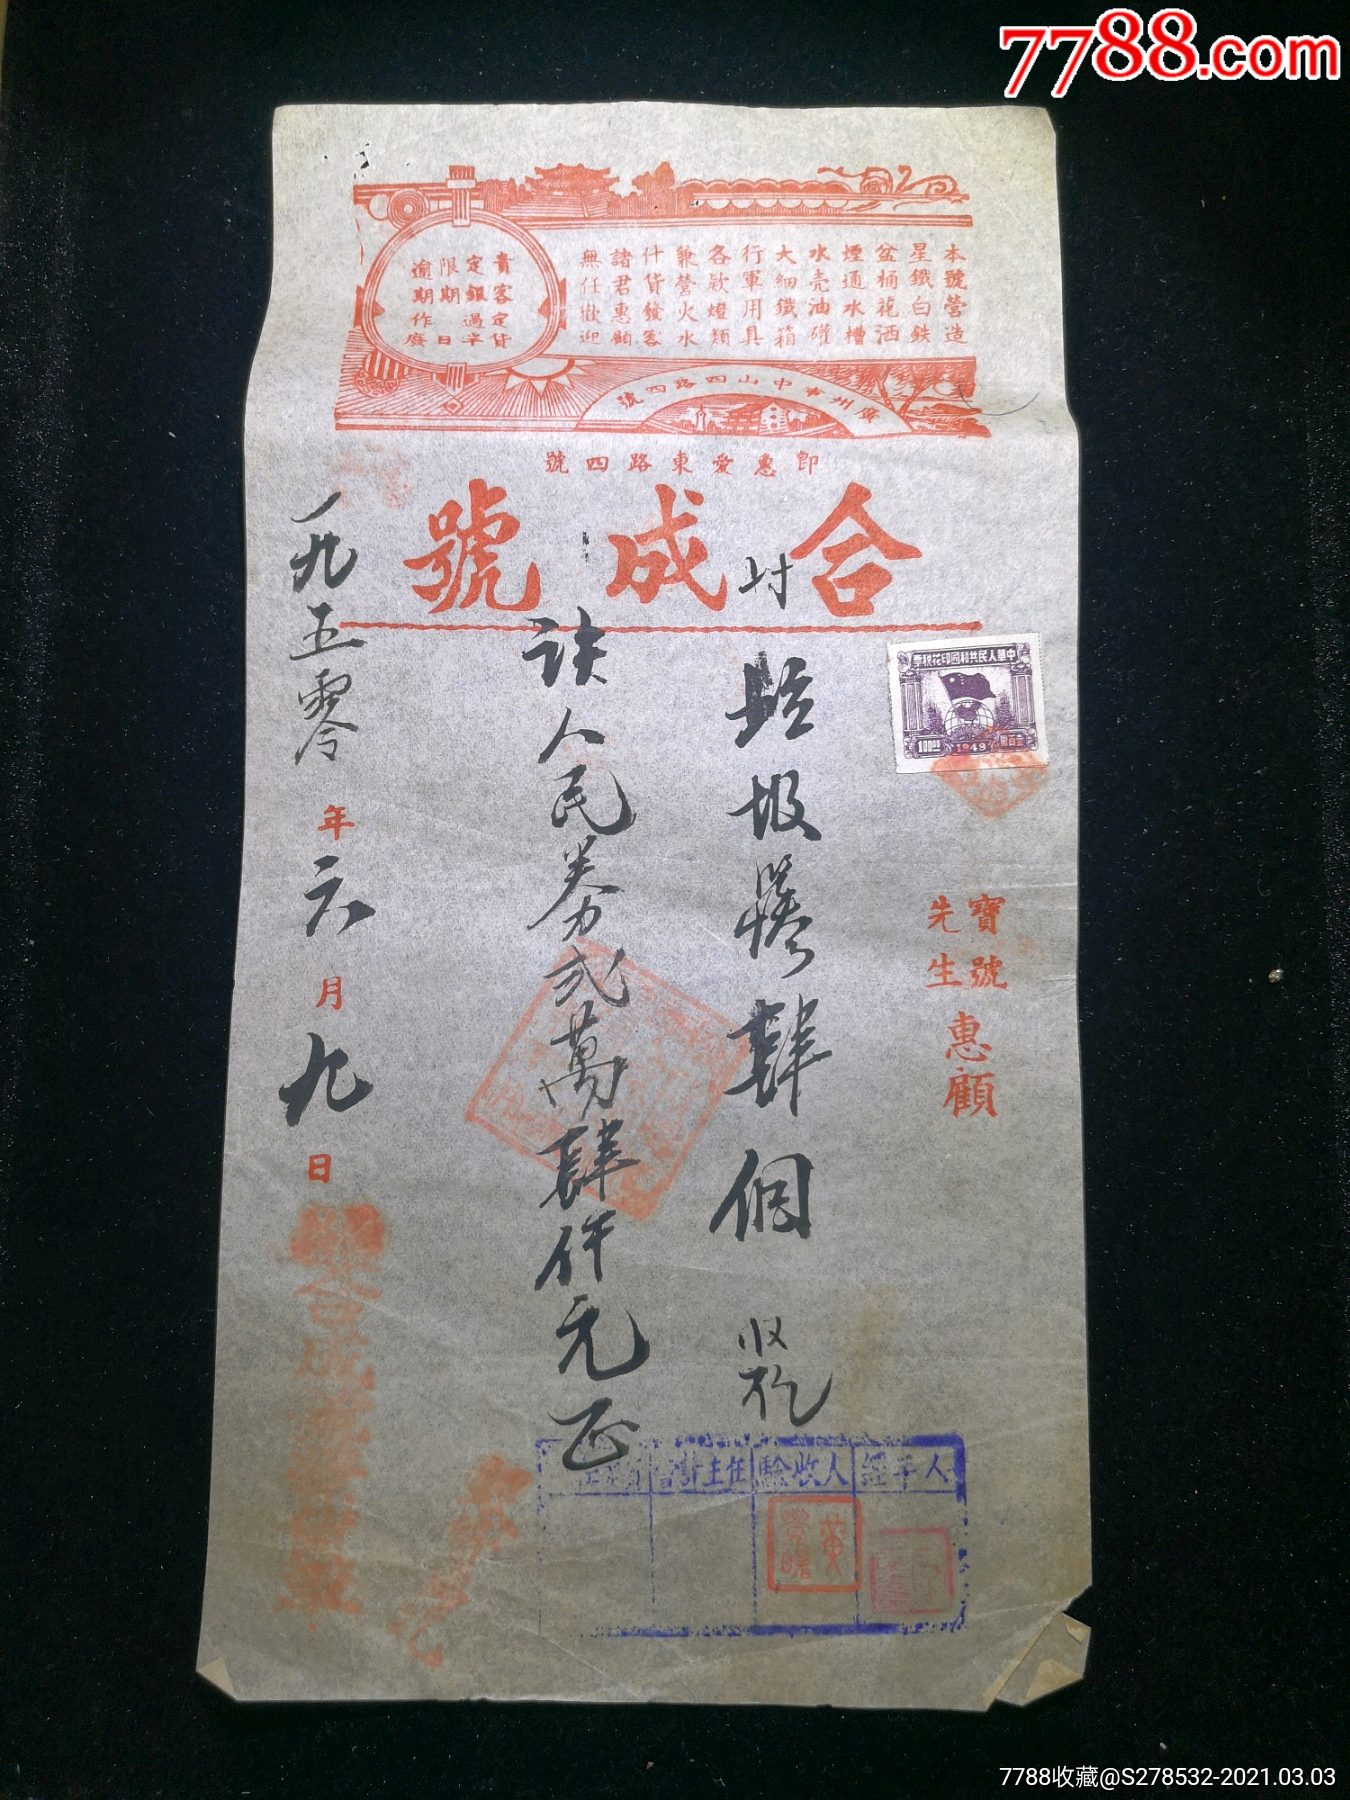 7788.com
本號營造
星鐵白鉄
盆桶花洒
煙通水槽
水壳油礶
大細鐵箱
行軍用具
各欵燈類
兼營火水
什貨發客
諸君惠顧
無任歡迎
貴客定貨
定銀過半
限期 日
逾期作廢
廣州市中山四路四號
即惠愛東路四號
合成號
中華人民共和國印花稅票
100
1949
寶號
先生
惠顧
付
垃圾 肆個 收訖
該人民券弍萬肆仟元正
一九五零年六月九日
經手人
驗收人
會計主任
黃
7788收藏@S278532-2021.03.03